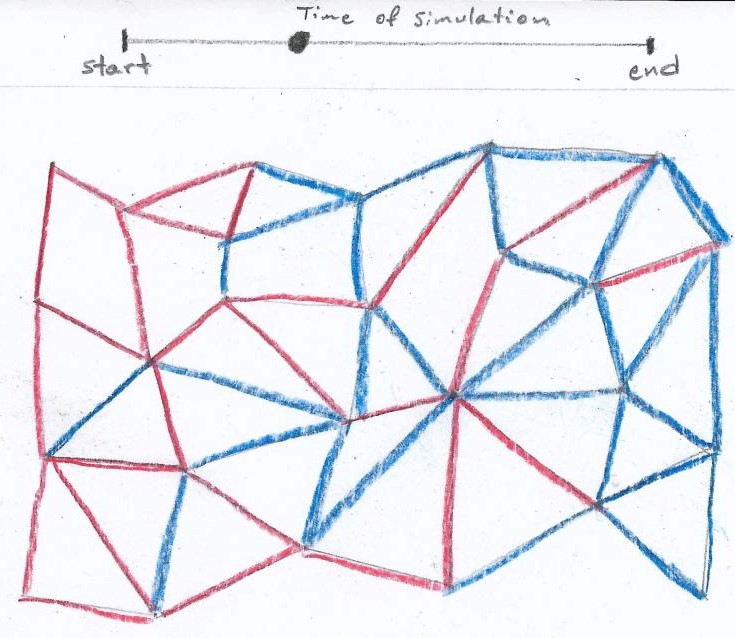 Time of simulation
start
end